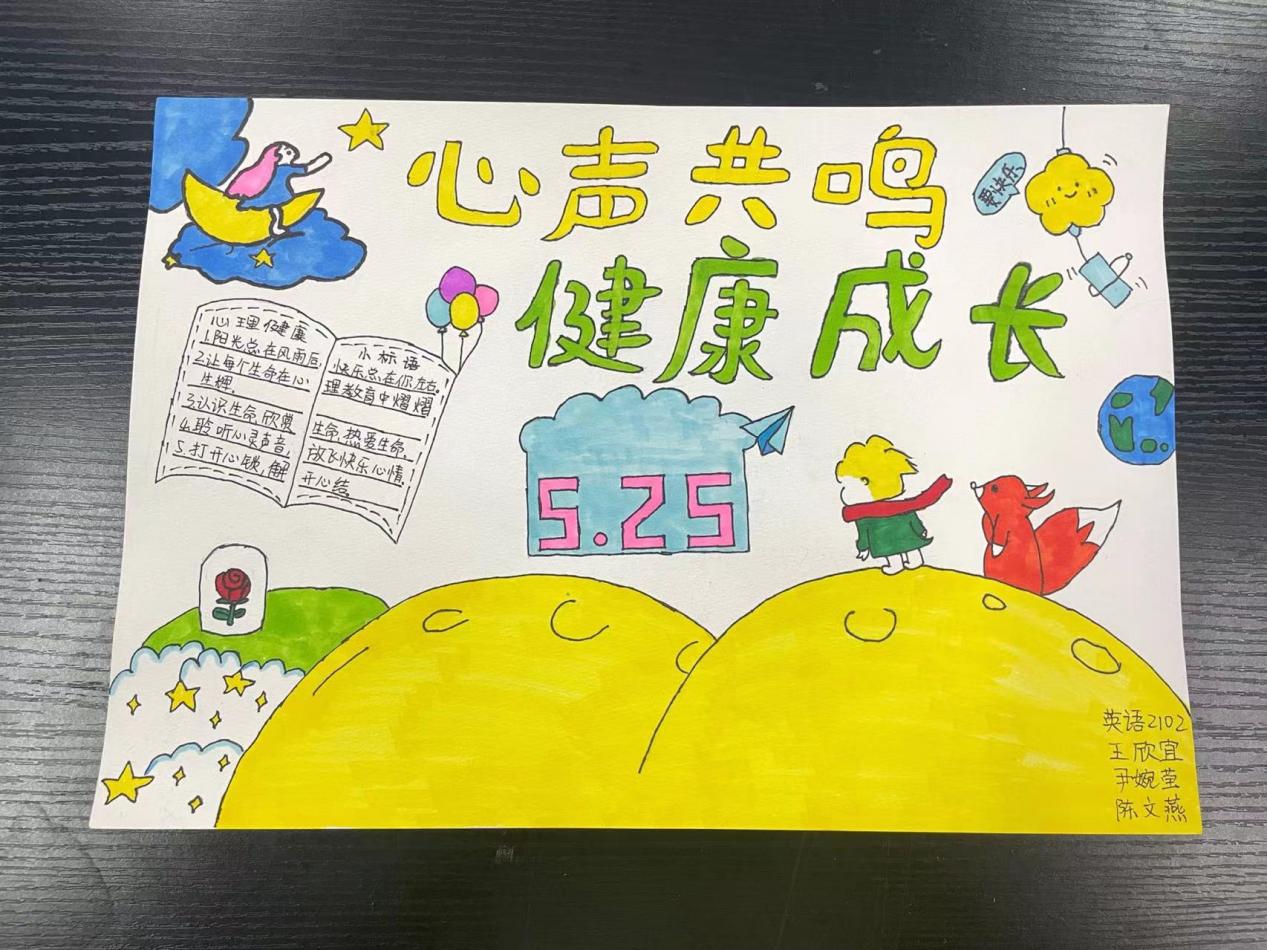 心声共鸣
健康成长
要快乐
心理健康
小标语
1.阳光总在风雨后,
快乐总在你左右.
2.让每个生命在心
理教育中熠熠
生辉.
3.认识生命,欣赏
生命,热爱生命.
4.聆听心灵声音,
放飞快乐心情.
5.打开心锁,解
开心结.
5.25
英语2102
王欣宜
尹婉莹
陈文燕